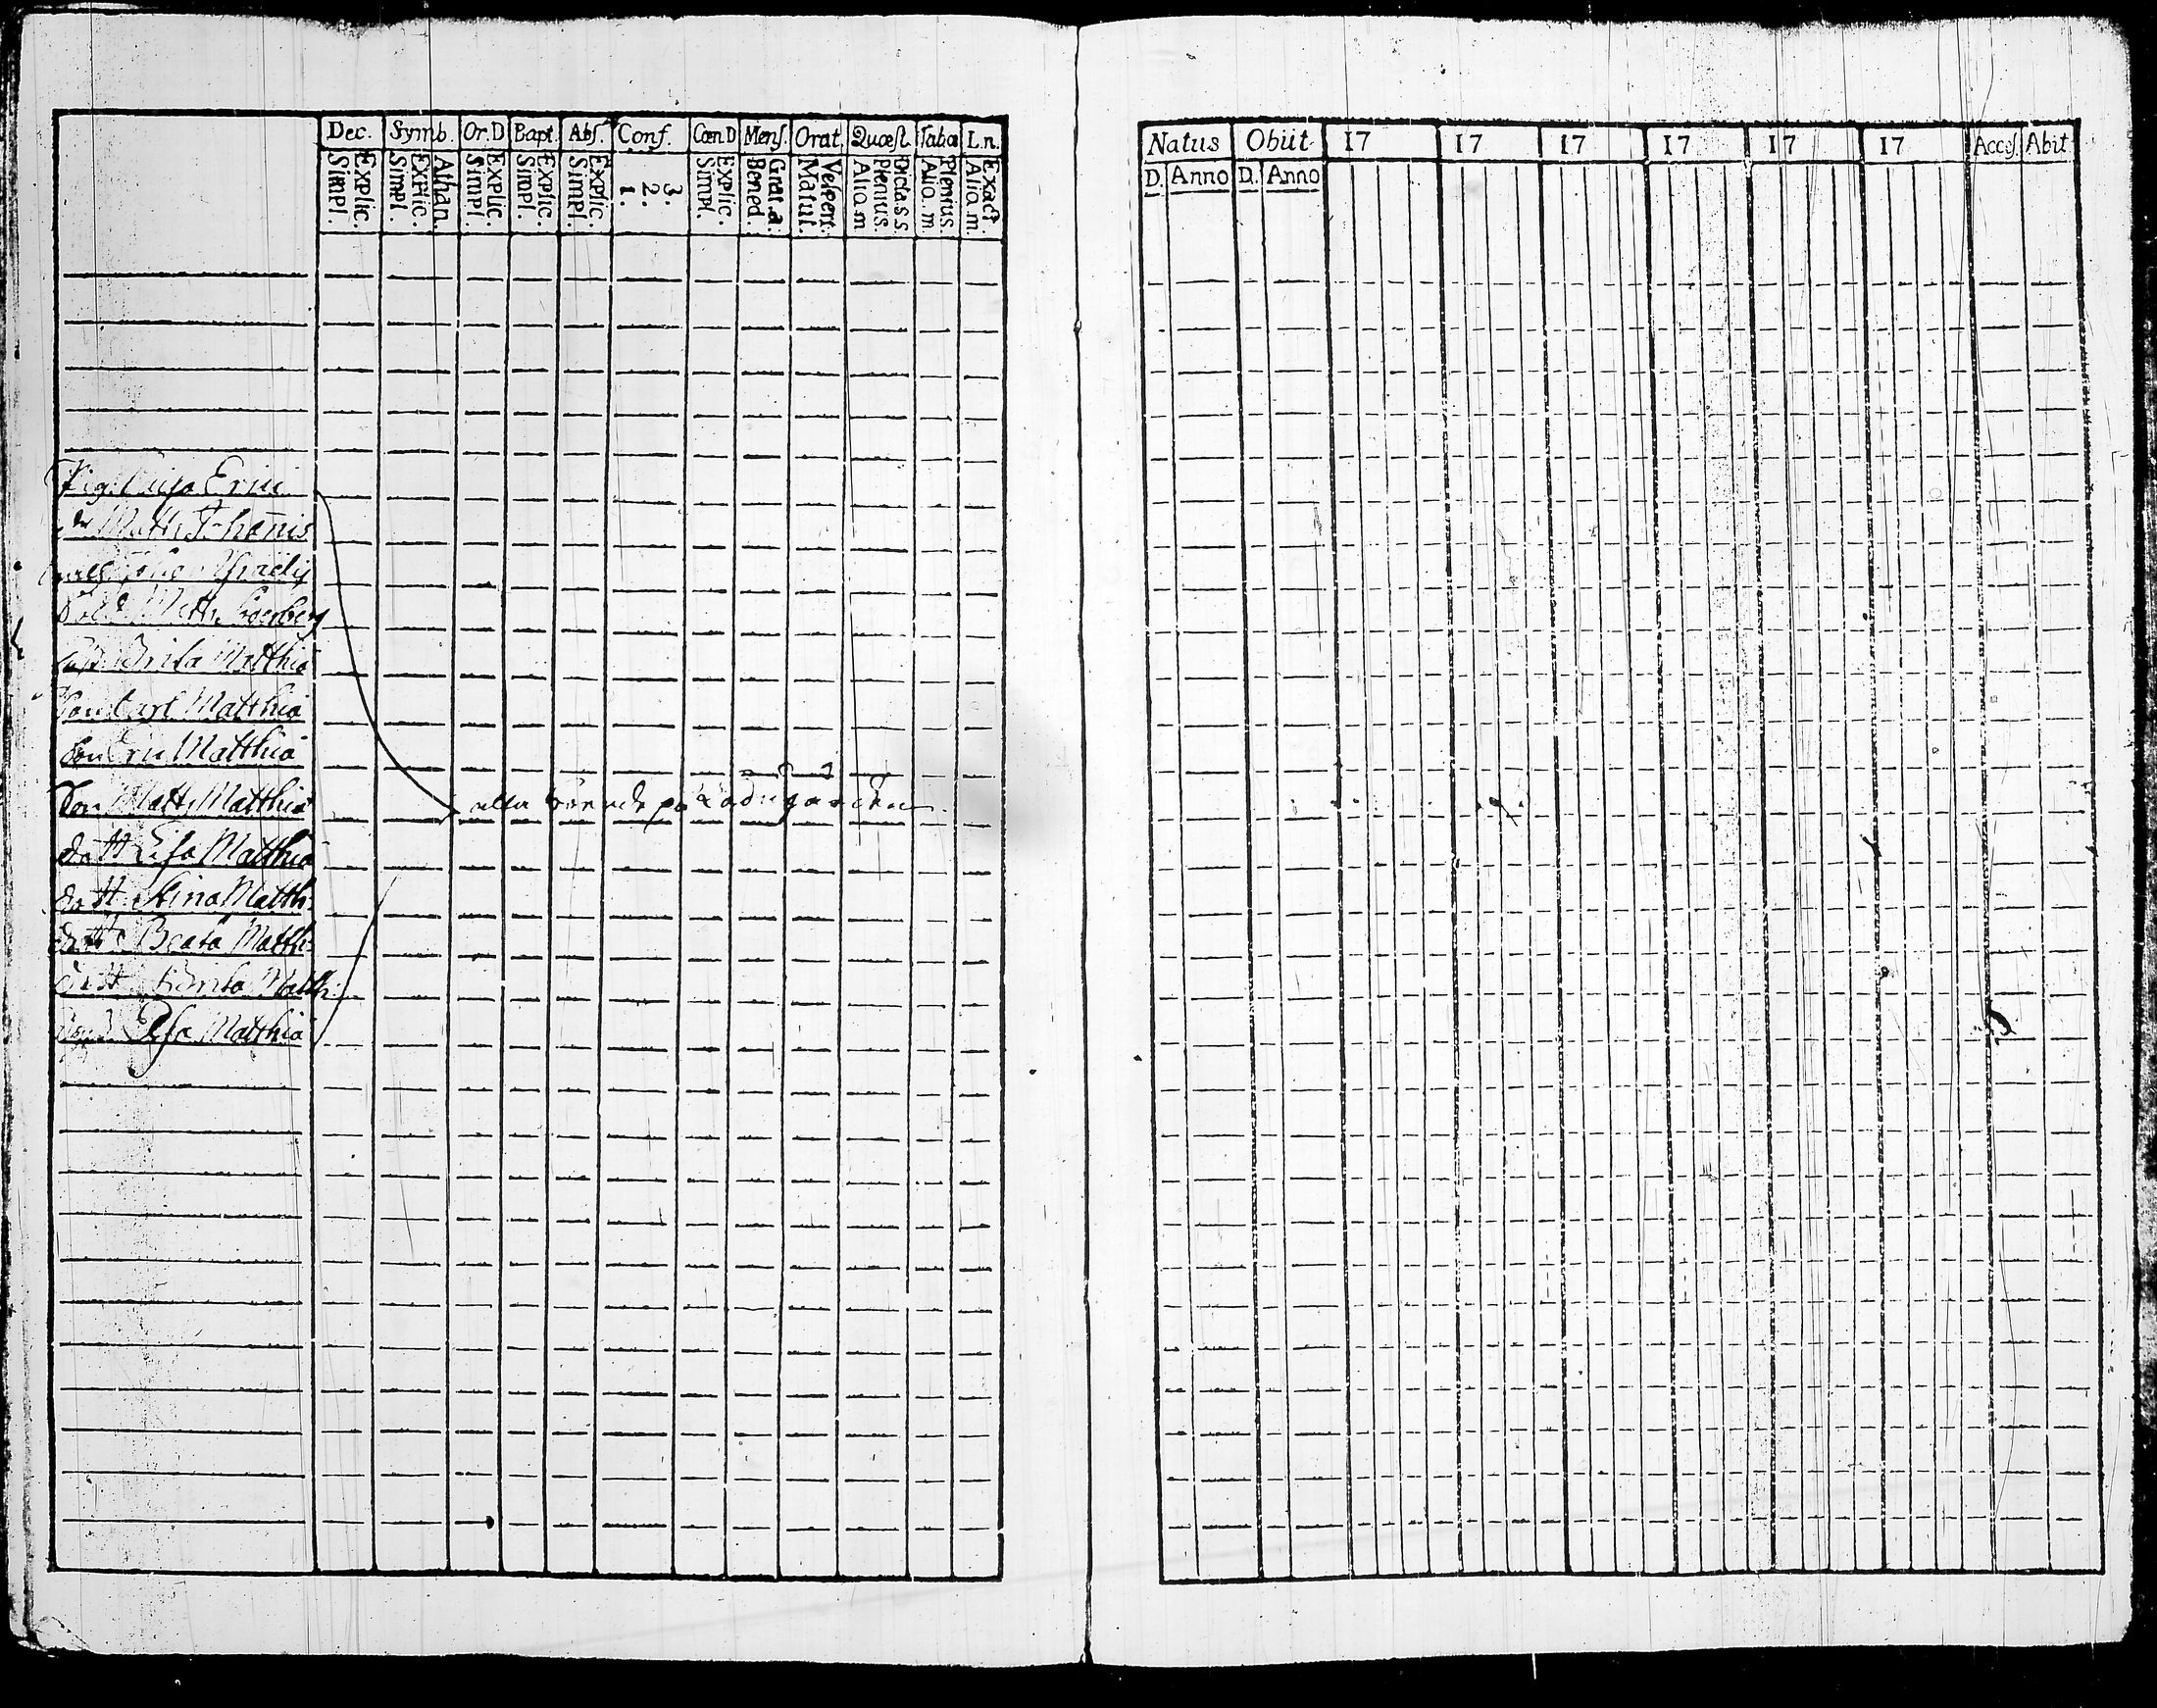 Dec. Symb. Or.D Bapt. Abs. Conf. Cœn D Mens. Orat. Quæst. Taba L.n.
Explic. Simpl. Athan. Explic. Simpl. Explic. Simpl. Explic. Simpl. Explic. Simpl. 3. 2. 1. Explic. Simpl. Grat.a. Bened. Vespert. Matut. Dicta.s s. Plenius. Alia.m Plenius. Alia.m Exact. Alia.m.
Pig. Erici
Matts
Matth.
Brita Matthiæ
Son Carl Matthiæ
Son Eric Matthiæ
Son Matts Matthiæ
dott Lisa Matthiæ
dott Stina Matth:
dott Beata Matth:
dott Brita Matth:
Lisa Matthiæ
alla boende på Ladugården
Natus Obiit 17 17 17 17 17 17 Acces. Abit
D. Anno D. Anno